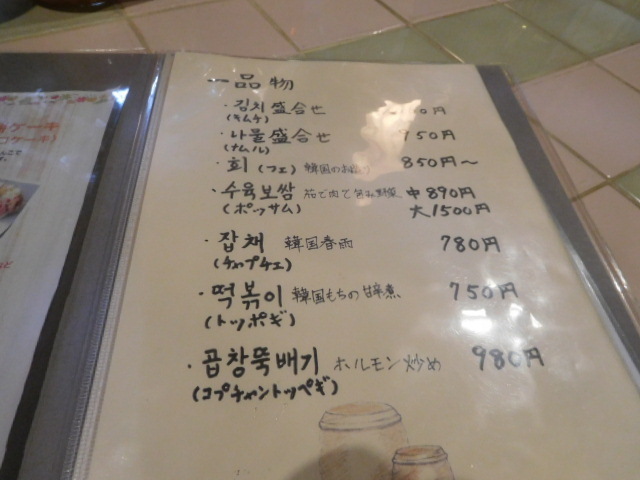 一品物
・김치盛合せ
(キムチ)
・나물盛合せ 750円
(ナムル)
・회(フェ) 韓国のお 850円～
・수육보쌈 茹で肉と包み野菜 中890円
(ポッサム) 大1500円
・잡채 韓国春雨 780円
(チャプチェ)
・떡볶이 韓国もちの甘辛煮 750円
(トッポギ)
・곱창뚝배기 ホルモン炒め 980円
(コプチャントッペギ)
ケーキ
ケーキ)